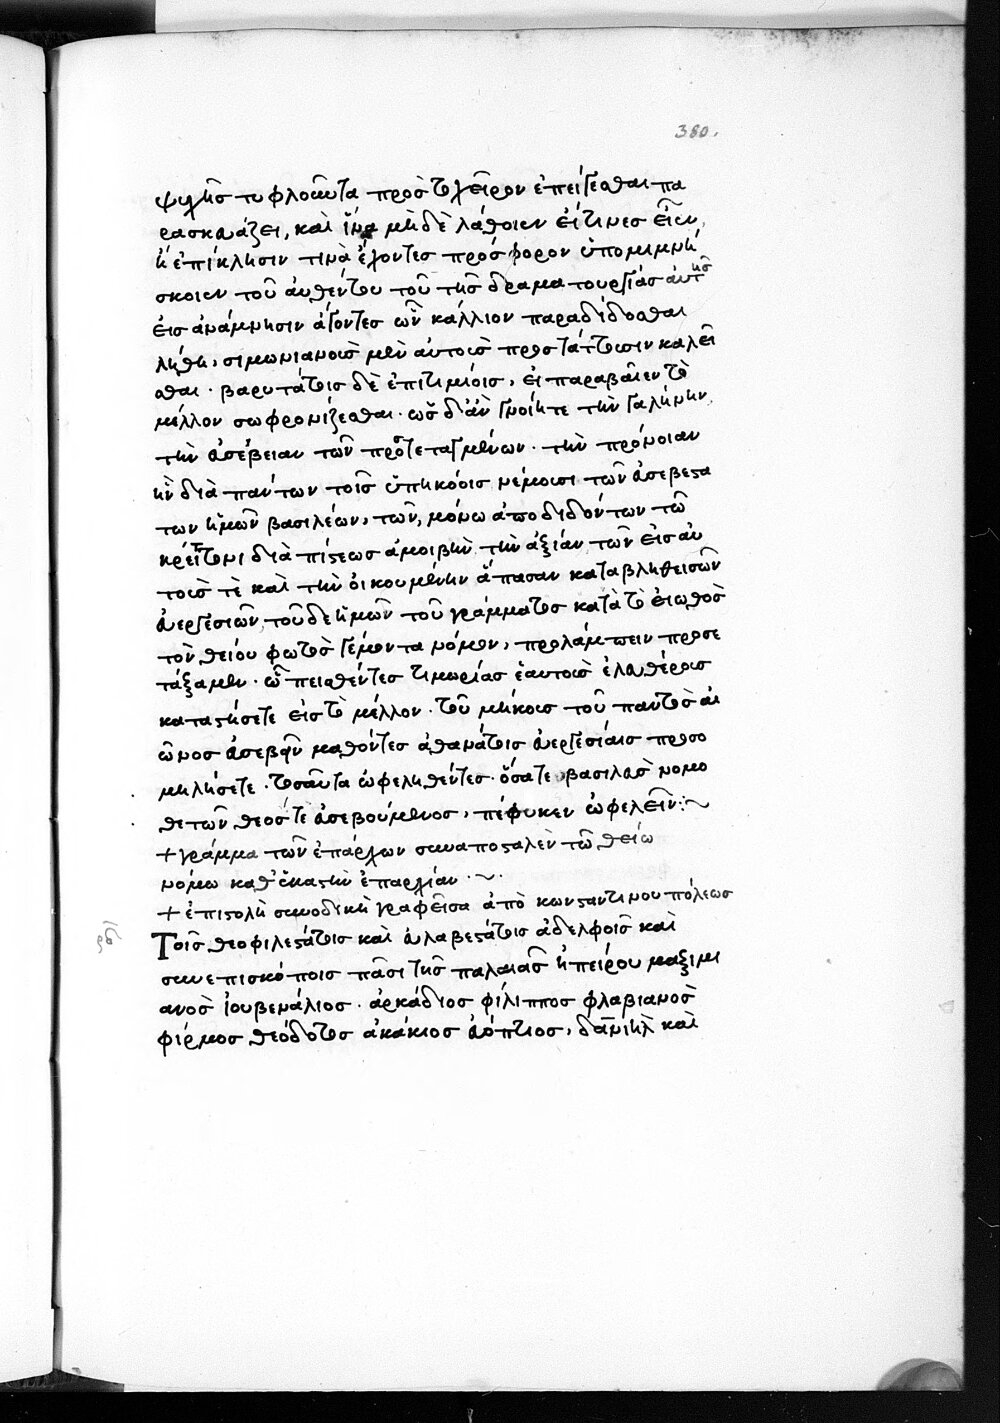 380.
ψυχῆς τυφλοῦντα πρὸς τὸ χεῖρον ἐπείγεσθαι πα
ρασκευάζει, καὶ ἵνα μηδὲ λάθοιεν οἵτινες εἶεν,
ἢ ἐπίκλησιν τινὰ ἔχοντες πρόσφορον ὑπομιμνή
σκοιεν τοῦ αὐθέντου τοῦ τῆς δραματουργίας αὐτῆς
εἰς ἀνάμνησιν ἄγοντες ὧν κάλλιον παραδίδοσθαι
λήθη, σιμωνιανοὺς μὲν αὐτοὺς προστάττουσιν καλεῖ
σθαι · βαρυτάτοις δὲ ἐπιτιμίοις, εἰ παραβαῖεν τὸ
μέλλον σωφρονίζεσθαι · ὡς δ' ἂν γνοίητε τὴν γαλήνην,
τὴν εὐσέβειαν τῶν προτεταγμένων · τὴν πρόνοιαν
ἣν διὰ πάντων τοῖς ὑπηκόοις νέμουσι τῶν εὐσεβεστά
των ἡμῶν βασιλέων, τῶν, μόνω ἀποδιδόντων τῶ
κρείττονι διὰ πίστεως ἀμοιβὴν τὴν ἀξίαν τῶν εἰς αὐ
τοὺς τὲ καὶ τὴν οἰκουμένην ἅπασαν καταβληθεισῶν
εὐεργεσιῶν, τοῦδε ἡμῶν τοῦ γράμματος κατὰ τὸ εἰωθὸς
τὸν θείου φωτὸς γέμοντα νόμον, προλάμπειν προσε
τάξαμεν · ὧ πεισθέντες τιμωρίας ἑαυτοὺς ἐλευθέρους
καταστήσετε εἰς τὸ μέλλον · τοῦ μήκους τοῦ παντὸς αἰ
ῶνος εὐσεβεῖν μαθόντες ἀθανάτοις εὐεργεσίαις προσο
μιλήσετε · τοσαῦτα ὠφεληθέντες · ὅσα τε βασιλεὺς νομο
θετῶν θεός τε εὐσεβούμενος, πέφυκεν ὠφελεῖν :~
+ γράμμα τῶν ἐπάρχων συναποσταλὲν τῶ θείω
νόμω καθ' ἑκάστην ἐπαρχίαν · ~ ·
+ ἐπιστολὴ συνοδικὴ γραφεῖσα ἀπὸ κωνσταντινουπόλεως
Τοῖς θεοφιλεστάτοις καὶ εὐλαβεστάτοις ἀδελφοῖς καὶ
συνεπισκόποις πᾶσι τῆς παλαιᾶς ἠπείρου μαξιμι
ανὸς ἰουβενάλιος · ἀρκάδιος φίλιππος φλαβιανὸς
φίρμος θεόδοτος ἀκάκιος εὐόπτιος, δανιὴλ καὶ